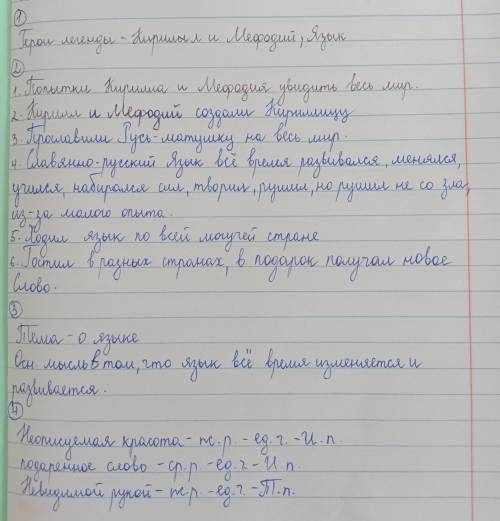 1
Герои легенды - Кирилыл и Мефодий, Язык
2
1. Попытки Кирилла и Мефодия увидить весь мир.
2. Кирилл и Мефодий создали Кириллицу
3. Прославили Русь-матушку на весь мир.
4. Славянно-русский язык всё время развивался, менялся,
учился, набирался сил, творил, рушил, но рушил не со зла,
из-за малого опыта.
5. Ходил язык по всей могучей стране
6. Гостил в разных странах, в подарок получал новое
слово.
3
Тема - о языке
Осн. мысль в том, что язык всё время изменяется и
развивается.
4
Неописуемая красота - ж.р. - ед.ч. - И.п.
подаренное слово - ср.р. - ед.ч - И.п.
Невидимой рукой - ж.р. - ед.ч. - Т.п.